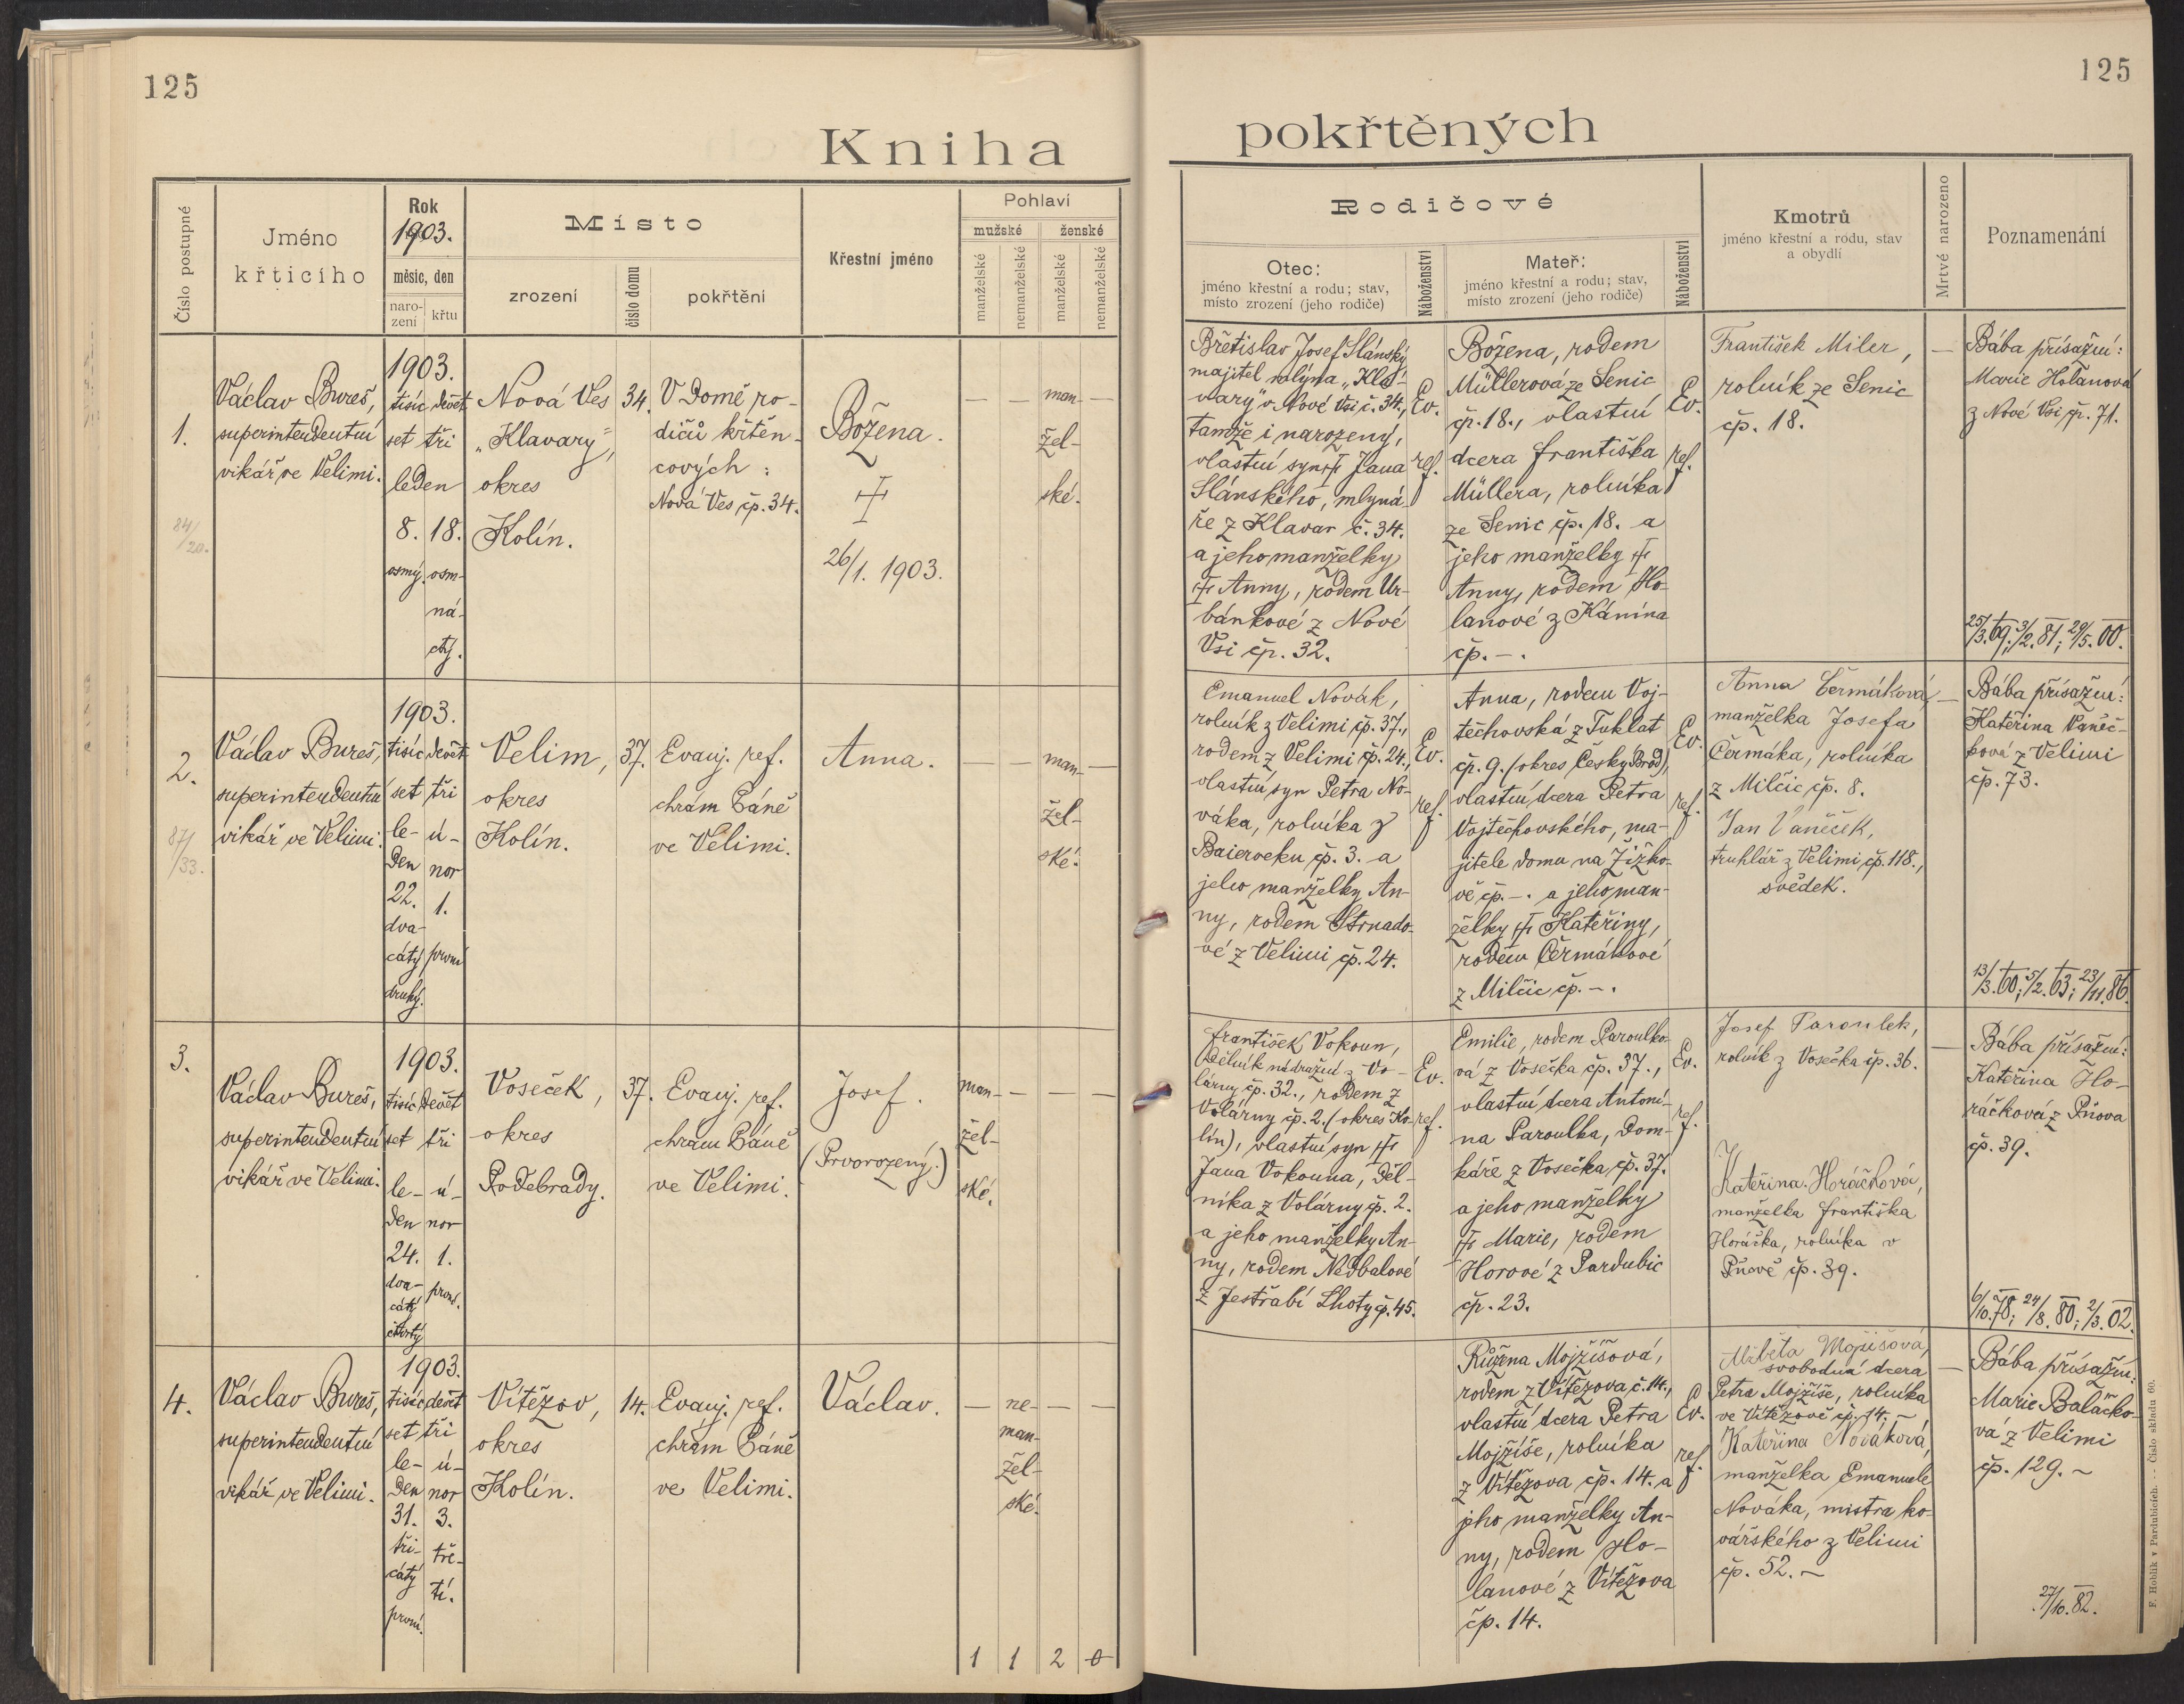 125
125
Kniha
pokřtěných
Číslo postupné
Jméno
křticího
Rok
1903.
měsíc, den
naro-
zení
křtu
Místo
zrození
číslo domu
pokřtění
Křestní jméno
Pohlaví
mužské
ženské
manželské
nemanželské
manželské
nemanželské
Rodičové
Otec:
jméno křestní a rodu; stav,
místo zrození (jeho rodiče)
Náboženství
Mateř:
jméno křestní a rodu; stav,
místo zrození (jeho rodiče)
Náboženství
Kmotrů
jméno křestní a rodu, stav
a obydlí
Mrtvé narozeno
Poznamenání
1.
84/20.
Václav Bureš,
superintendentní
vikář ve Velimi.
1903.
tisíc devět
set tři
leden
8. 18.
osmý. osm-
ná-
ctý.
Nová Ves
„Klavary“,
okres
Kolín.
34.
V Domě ro-
dičů křtěn-
cových:
Nová Ves čp. 34.
Božena.
26/1. 1903.
— — man- —
žel-
ské.
Břetislav Josef Slánský
majitel mlýna „Kla-
vary“ v Nové Vsi č. 34.,
tamže i narozený,
vlastní syn † Jana
Slánského, mlyná-
ře z Klavar č. 34.
a jeho manželky
† Anny, rodem Ur-
bánkové z Nové
Vsi čp. 32.
Ev.
ref.
Božena, rodem
Müllerová ze Senic
čp. 18., vlastní
dcera Františka
Müllera, rolníka
ze Senic čp. 18. a
jeho manželky †
Anny, rodem Ho-
lanové z Kánína
čp. –.
Ev.
ref.
František Miler,
rolník ze Senic
čp. 18.
—
Bába přísažní:
Marie Holanová
z Nové Vsi čp. 71.
25/3. 69; 3/2. 81; 29/5. 00.
2.
87/33.
Václav Bureš,
superintendentní
vikář ve Velimi.
1903.
tisíc devět
set tři
le- ú-
den nor
22. 1.
dva-
cátý první
druhý.
Velim,
okres
Kolín.
37.
Evanj. ref.
chrám Páně
ve Velimi.
Anna.
— — man- —
žel-
ské.
Emanuel Novák,
rolník z Velimi čp. 37.,
rodem z Velimi čp. 24.,
vlastní syn Petra No-
váka, rolníka z
Baierveku čp. 3. a
jeho manželky An-
ny, rodem Strnado-
vé z Velimi čp. 24.
Ev.
ref.
Anna, rodem Voj-
těchovská z Tuklat
čp. 9. (okres Český Brod),
vlastní dcera Petra
Vojtěchovského, ma-
jitele domu na Žižko-
vě čp. –. a jeho man-
želky † Kateřiny,
rodem Čermákové
z Milčic čp. –.
Ev.
ref.
Anna Čermáková,
manželka Josefa
Čermáka, rolníka
z Milčic čp. 8.
Jan Vaněček,
truhlář z Velimi čp. 118.,
svědek.
—
Bába přísažní:
Kateřina Vaněč-
ková z Velimi
čp. 73.
13/3. 60; 5/2. 63; 23/11. 86.
3.
Václav Bureš,
superintendentní
vikář ve Velimi.
1903.
tisíc devět
set tři
le- ú-
den nor
24. 1.
dva- první.
cátý
čtvrtý
Voseček,
okres
Poděbrady.
37.
Evanj. ref.
chrám Páně
ve Velimi.
Josef.
(Prvorozený.)
man- — — —
žel-
ské.
František Vokoun,
dělník nádražní z Vo-
lárny čp. 32., rodem z
Volárny čp. 2. (okres Ko-
lín), vlastní syn †
Jana Vokouna, děl-
níka z Volárny čp. 2.
a jeho manželky An-
ny, rodem Nedbalové
z Jestřabí Lhoty čp. 45.
Ev.
ref.
Emilie, rodem Paroulko-
vá z Vosečka čp. 37.,
vlastní dcera Antoní-
na Paroulka, dom-
káře z Vosečka čp. 37.
a jeho manželky
† Marie, rodem
Horové z Pardubic
čp. 23.
Ev.
ref.
Josef Paroulek,
rolník z Vosečka čp. 36.
Kateřina Horáčková,
manželka Františka
Horáčka, rolníka v
Pňově čp. 39.
—
Bába přísažní:
Kateřina Ho-
ráčková z Pňova
čp. 39.
6/10. 78; 24/8. 80; 2/3. 02.
4.
Václav Bureš,
superintendentní
vikář ve Velimi.
1903.
tisíc devět
set tři
le- ú-
den nor
31. 3.
tři- tře-
cátý tí.
první.
Vítězov,
okres
Kolín.
14.
Evanj. ref.
chrám Páně
ve Velimi.
Václav.
— ne- — —
man-
žel-
ské.
Růžena Mojžíšová,
rodem z Vítězova č. 14.,
vlastní dcera Petra
Mojžíše, rolníka
z Vítězova čp. 14. a
jeho manželky An-
ny, rodem Ho-
lanové z Vítězova
čp. 14.
Ev.
ref.
Alžběta Mojžíšová,
svobodná dcera
Petra Mojžíše, rolníka
ve Vítězově čp. 14. –
Kateřina Nováková,
manželka Emanuele
Nováka, mistra ko-
vářského z Velimi
čp. 52. –
—
Bába přísažní:
Marie Balačko-
vá z Velimi
čp. 129. –
27/10. 82.
1 1 2 0
F. Hoblík v Pardubicích. -- Číslo skladu 60.